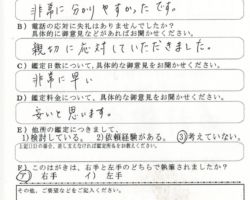 非常に分かりやすかったです。
B)電話の応対に失礼はありませんでしたか?
具体的に御意見などがあればお聞かせください。
親切に応対していただきました。
C)鑑定日数について,具体的な御意見をお聞かせください。
非常に早い
D)鑑定料金について,具体的な御意見をお聞かせください。
安いと思います。
E)他所の鑑定につきまして、
1)検討している。 2)依頼経験がある。 ③考えていない。
F)このはがきは、右手と左手のどちらで執筆されましたか?
ア)右手 イ)左手
その他,ご要望などをご記入ください。